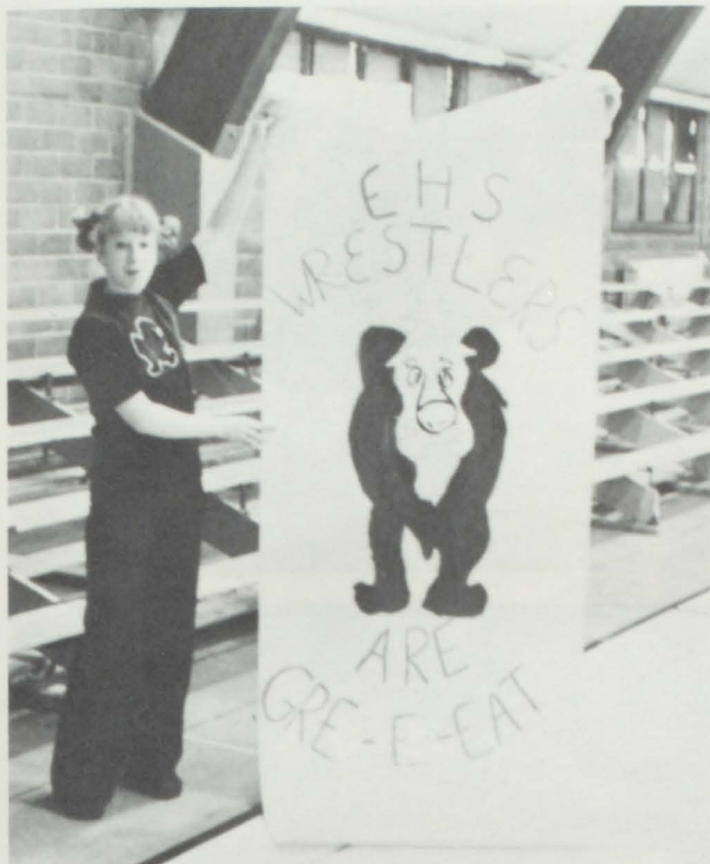 EHS
WRESTLERS
ARE
GRE-E-EAT